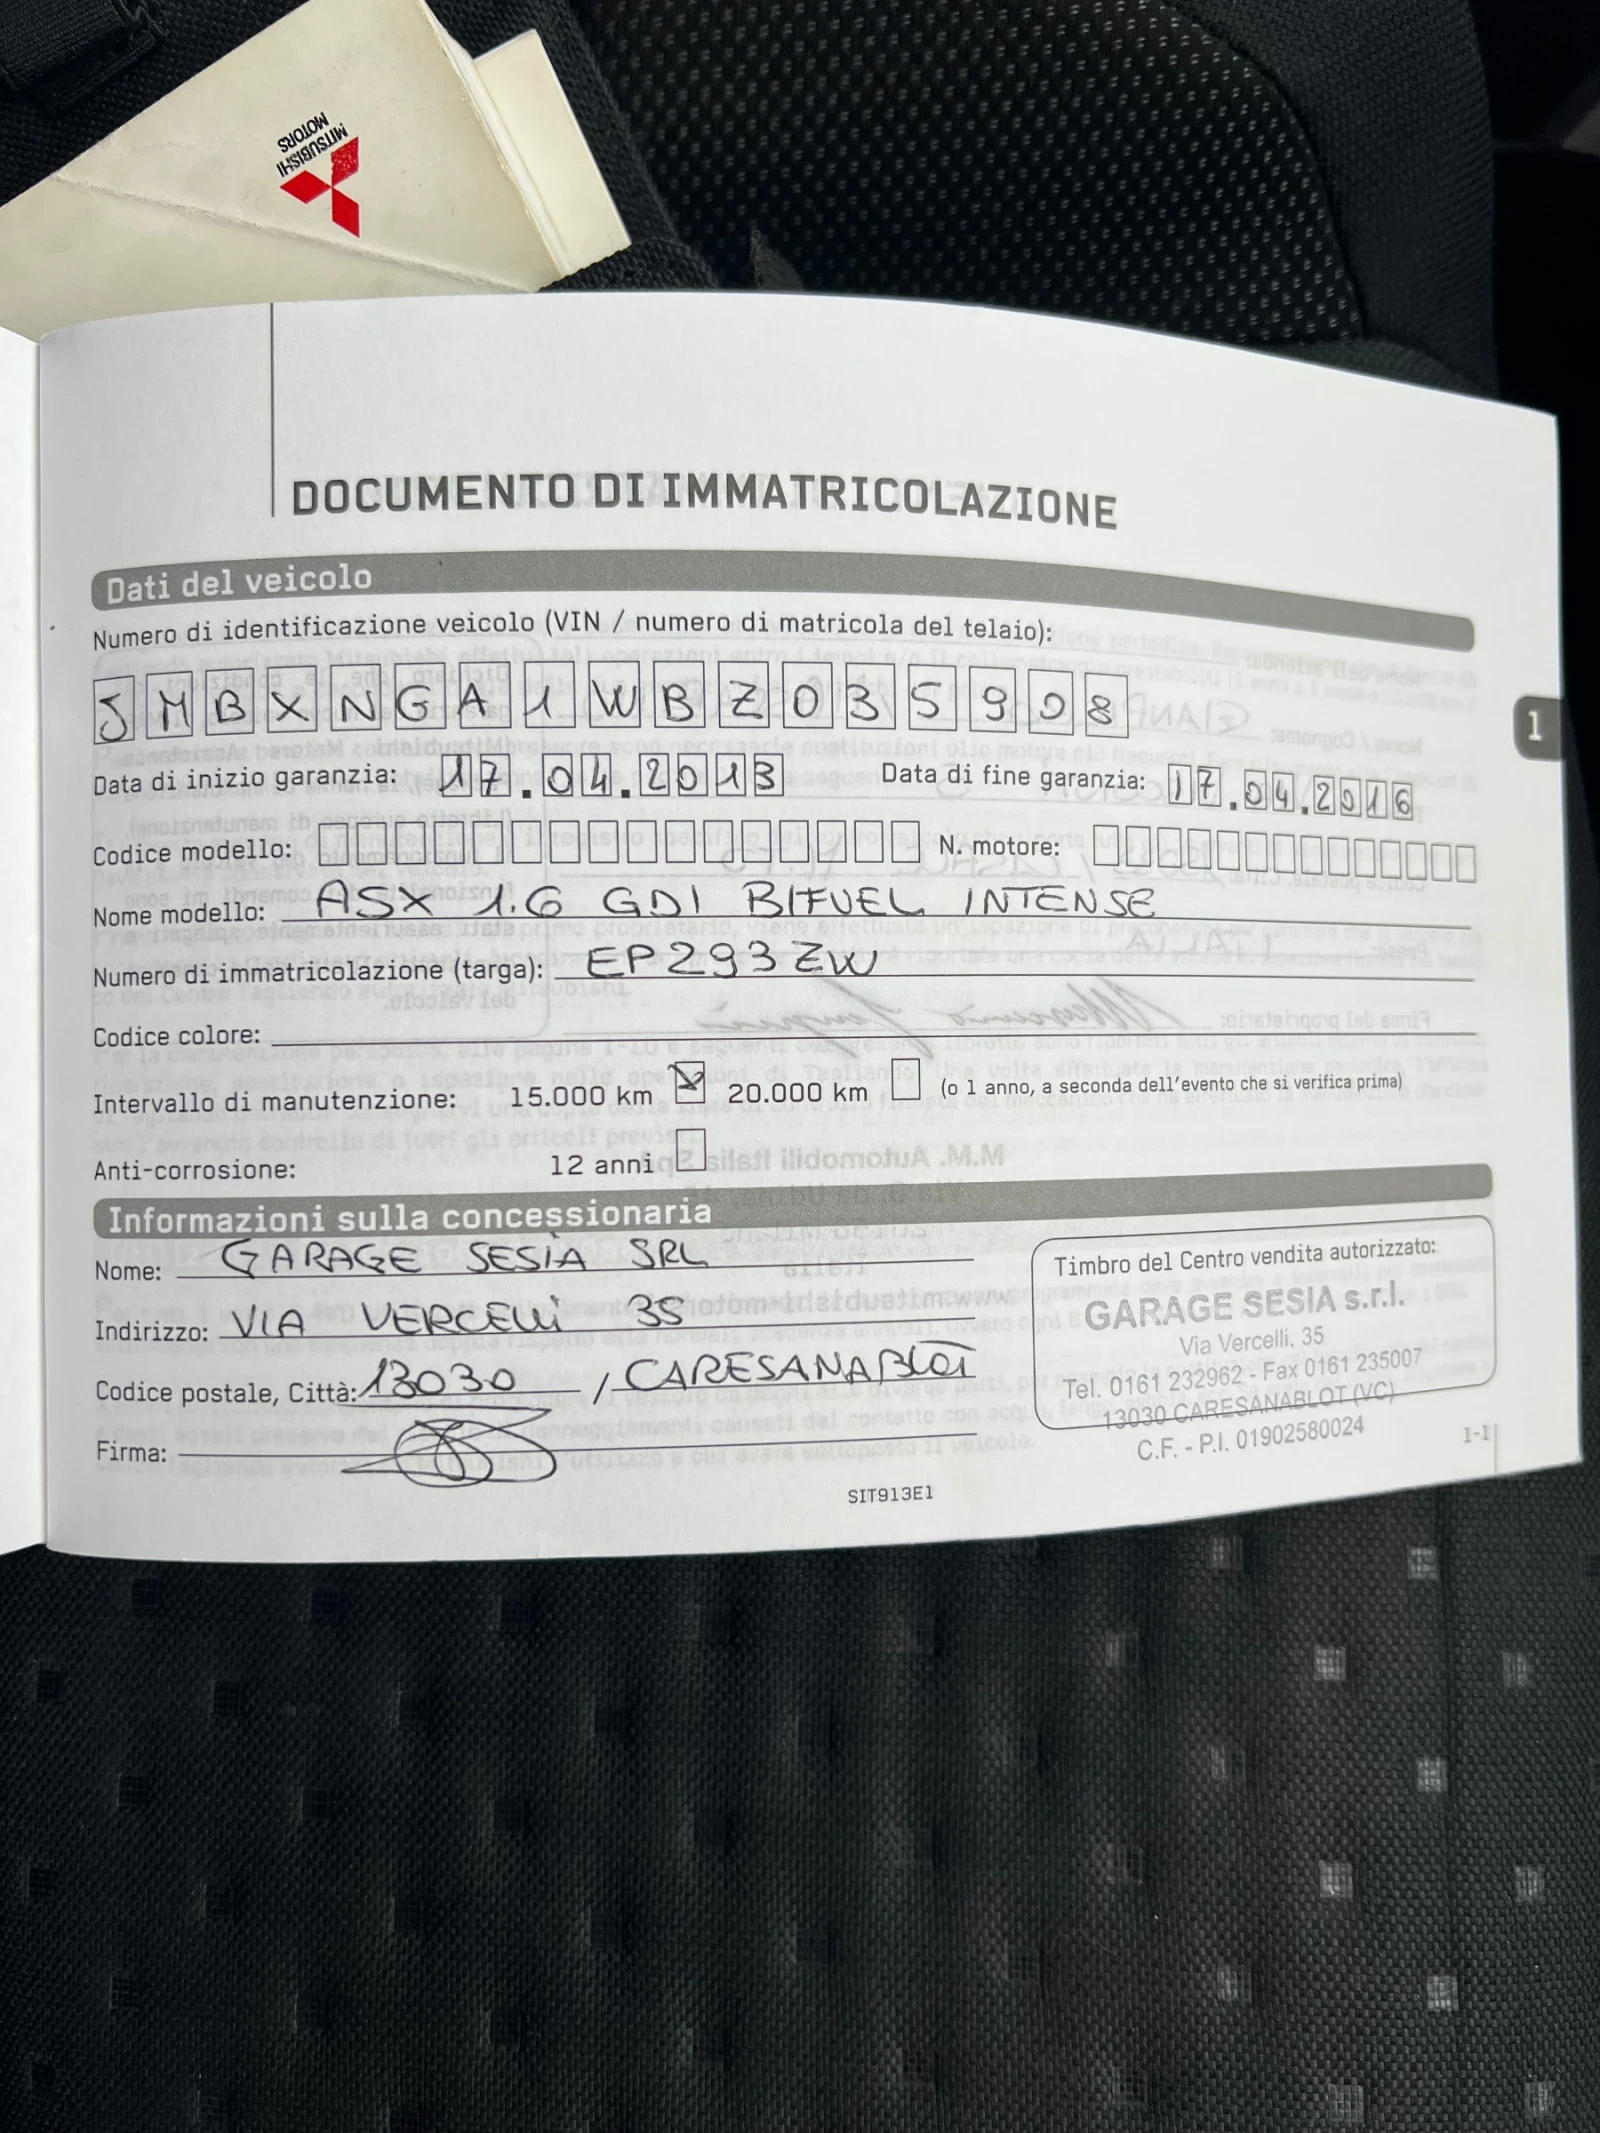 MITSUBISHI
MOTORS
DOCUMENTO DI IMMATRICOLAZIONE
Dati del veicolo
Numero di identificazione veicolo (VIN / numero di matricola del telaio):
JMBXNGA1WBZ035908
Data di inizio garanzia: 17.04.2013 Data di fine garanzia: 17.04.2016
Codice modello: N. motore:
Nome modello: ASX 1.6 GDI BIFUEL INTENSE
Numero di immatricolazione (targa): EP293ZW
Codice colore:
Intervallo di manutenzione: 15.000 km 20.000 km (o 1 anno, a seconda dell'evento che si verifica prima)
Anti-corrosione: 12 anni
1
Informazioni sulla concessionaria
Nome: GARAGE SESIA SRL
Indirizzo: VIA VERCELLI 35
Codice postale, Città: 13030 / CARESANABLOT
Firma:
Timbro del Centro vendita autorizzato:
GARAGE SESIA s.r.l.
Via Vercelli, 35
Tel. 0161 232962 - Fax 0161 235007
13030 CARESANABLOT (VC)
C.F. - P.I. 01902580024
1-1
SIT913E1